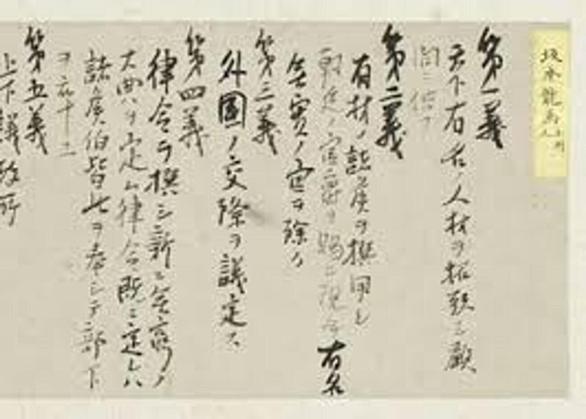 坂本龍馬
第一義
天下有名ノ人材ヲ招致シ顧
問ニ供フ
第二義
有材ノ諸侯ヲ撰用シ
朝廷ノ官爵ヲ賜ヒ現今有名
無實ノ官ヲ除ク
第三義
外國ノ交際ヲ議定ス
第四義
律令ヲ撰シ新ニ無窮ノ
大典ヲ定ム律令既ニ定レハ
諸侯伯皆此ヲ奉シテ部下
ヲ率ユ
第五義
上下議政所